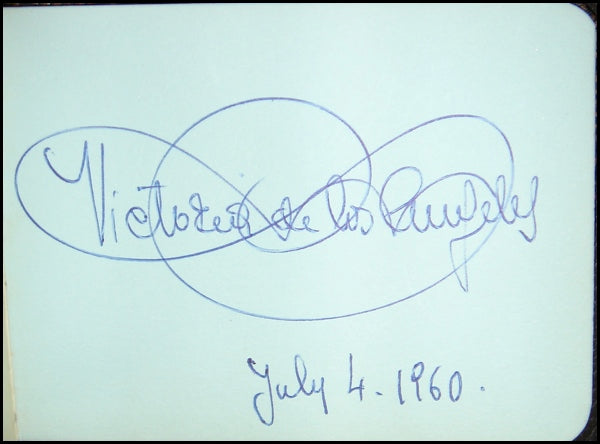 Victoria de los Angeles
July 4. 1960.